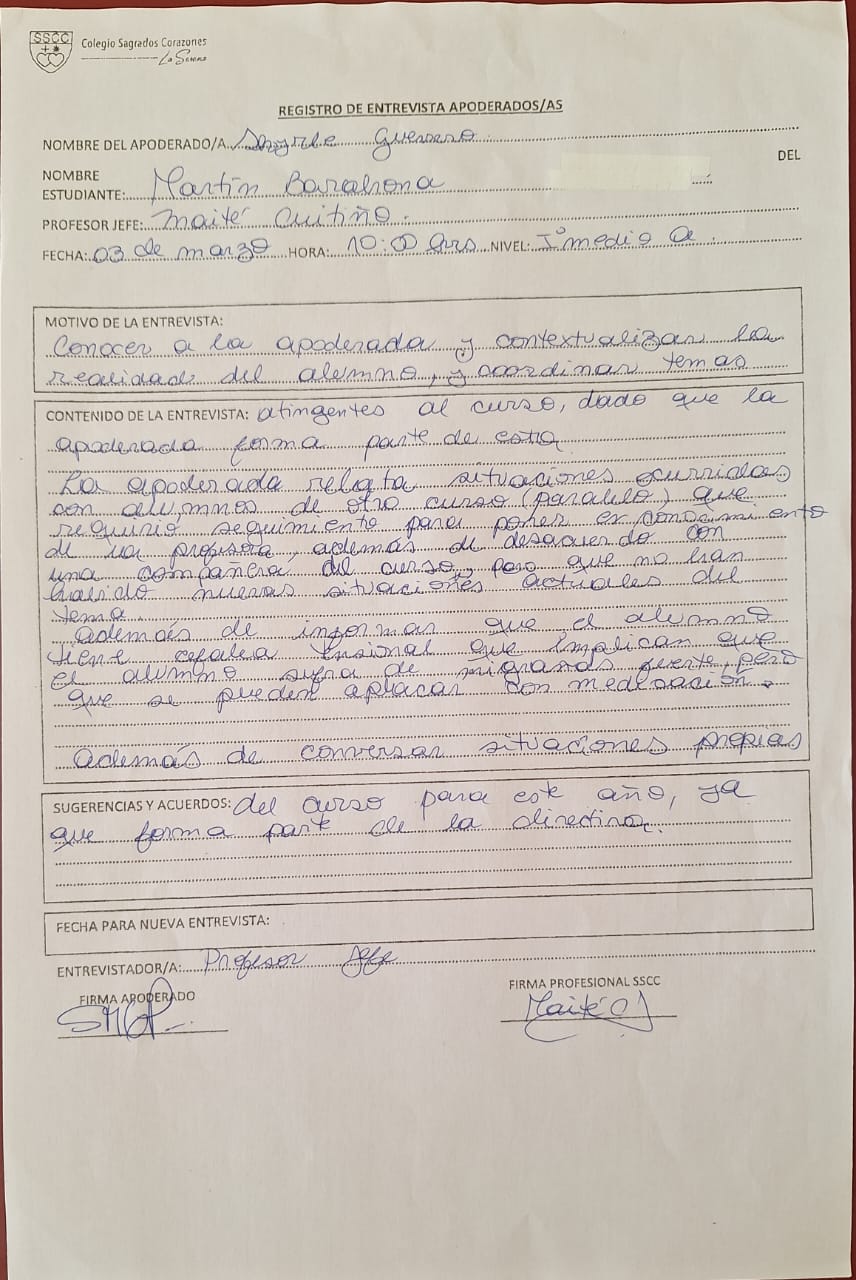 SSCC
Colegio Sagrados Corazones
La Serena
REGISTRO DE ENTREVISTA APODERADOS/AS
NOMBRE DEL APODERADO/A Guerrero
NOMBRE DEL
ESTUDIANTE: Martín Barahona
PROFESOR JEFE: Maité Cuitiño.
FECHA: 03 de marzo HORA: 10:00 hrs NIVEL: Iº medio A.
MOTIVO DE LA ENTREVISTA:
Conocer a la apoderada y contextualizar la
realidad del alumno, y coordinar temas
CONTENIDO DE LA ENTREVISTA: atingentes al curso, dado que la
apoderada forma parte de esta
La apoderada relata situaciones ocurridas
con alumnos de otro curso (paralelo) que
requirió seguimiento para poner en conocimiento
de la profesora, además de desacuerdo con
una compañera del curso, pero que no han
habido nuevas situaciones actuales del
tema.
Además de informar que el alumno
tiene cefalea tensional que implican que
el alumno sufra de migrañas fuerte, pero
que se pueden aplacar con medicación.
Además de conversar situaciones propias
SUGERENCIAS Y ACUERDOS: del curso para este año, ya
que forma parte de la directiva.
FECHA PARA NUEVA ENTREVISTA:
ENTREVISTADOR/A: Profesor Jefe
FIRMA APODERADO
FIRMA PROFESIONAL SSCC
Maité C